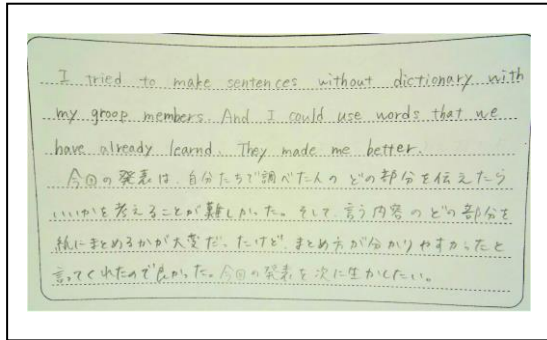 I tried to make sentences without dictionary with
my groop members. And I could use words that we
have already learnd. They made me better.
今回の発表は、自分たちで調べた人のどの部分を伝えたら
いいかを考えることが難しかった。そして、言う内容のどの部分を
紙にまとめるかが大変だ。だけど、まとめ方が分かりやすかったと
言ってくれたので良かった。今回の発表を次に生かしたい。